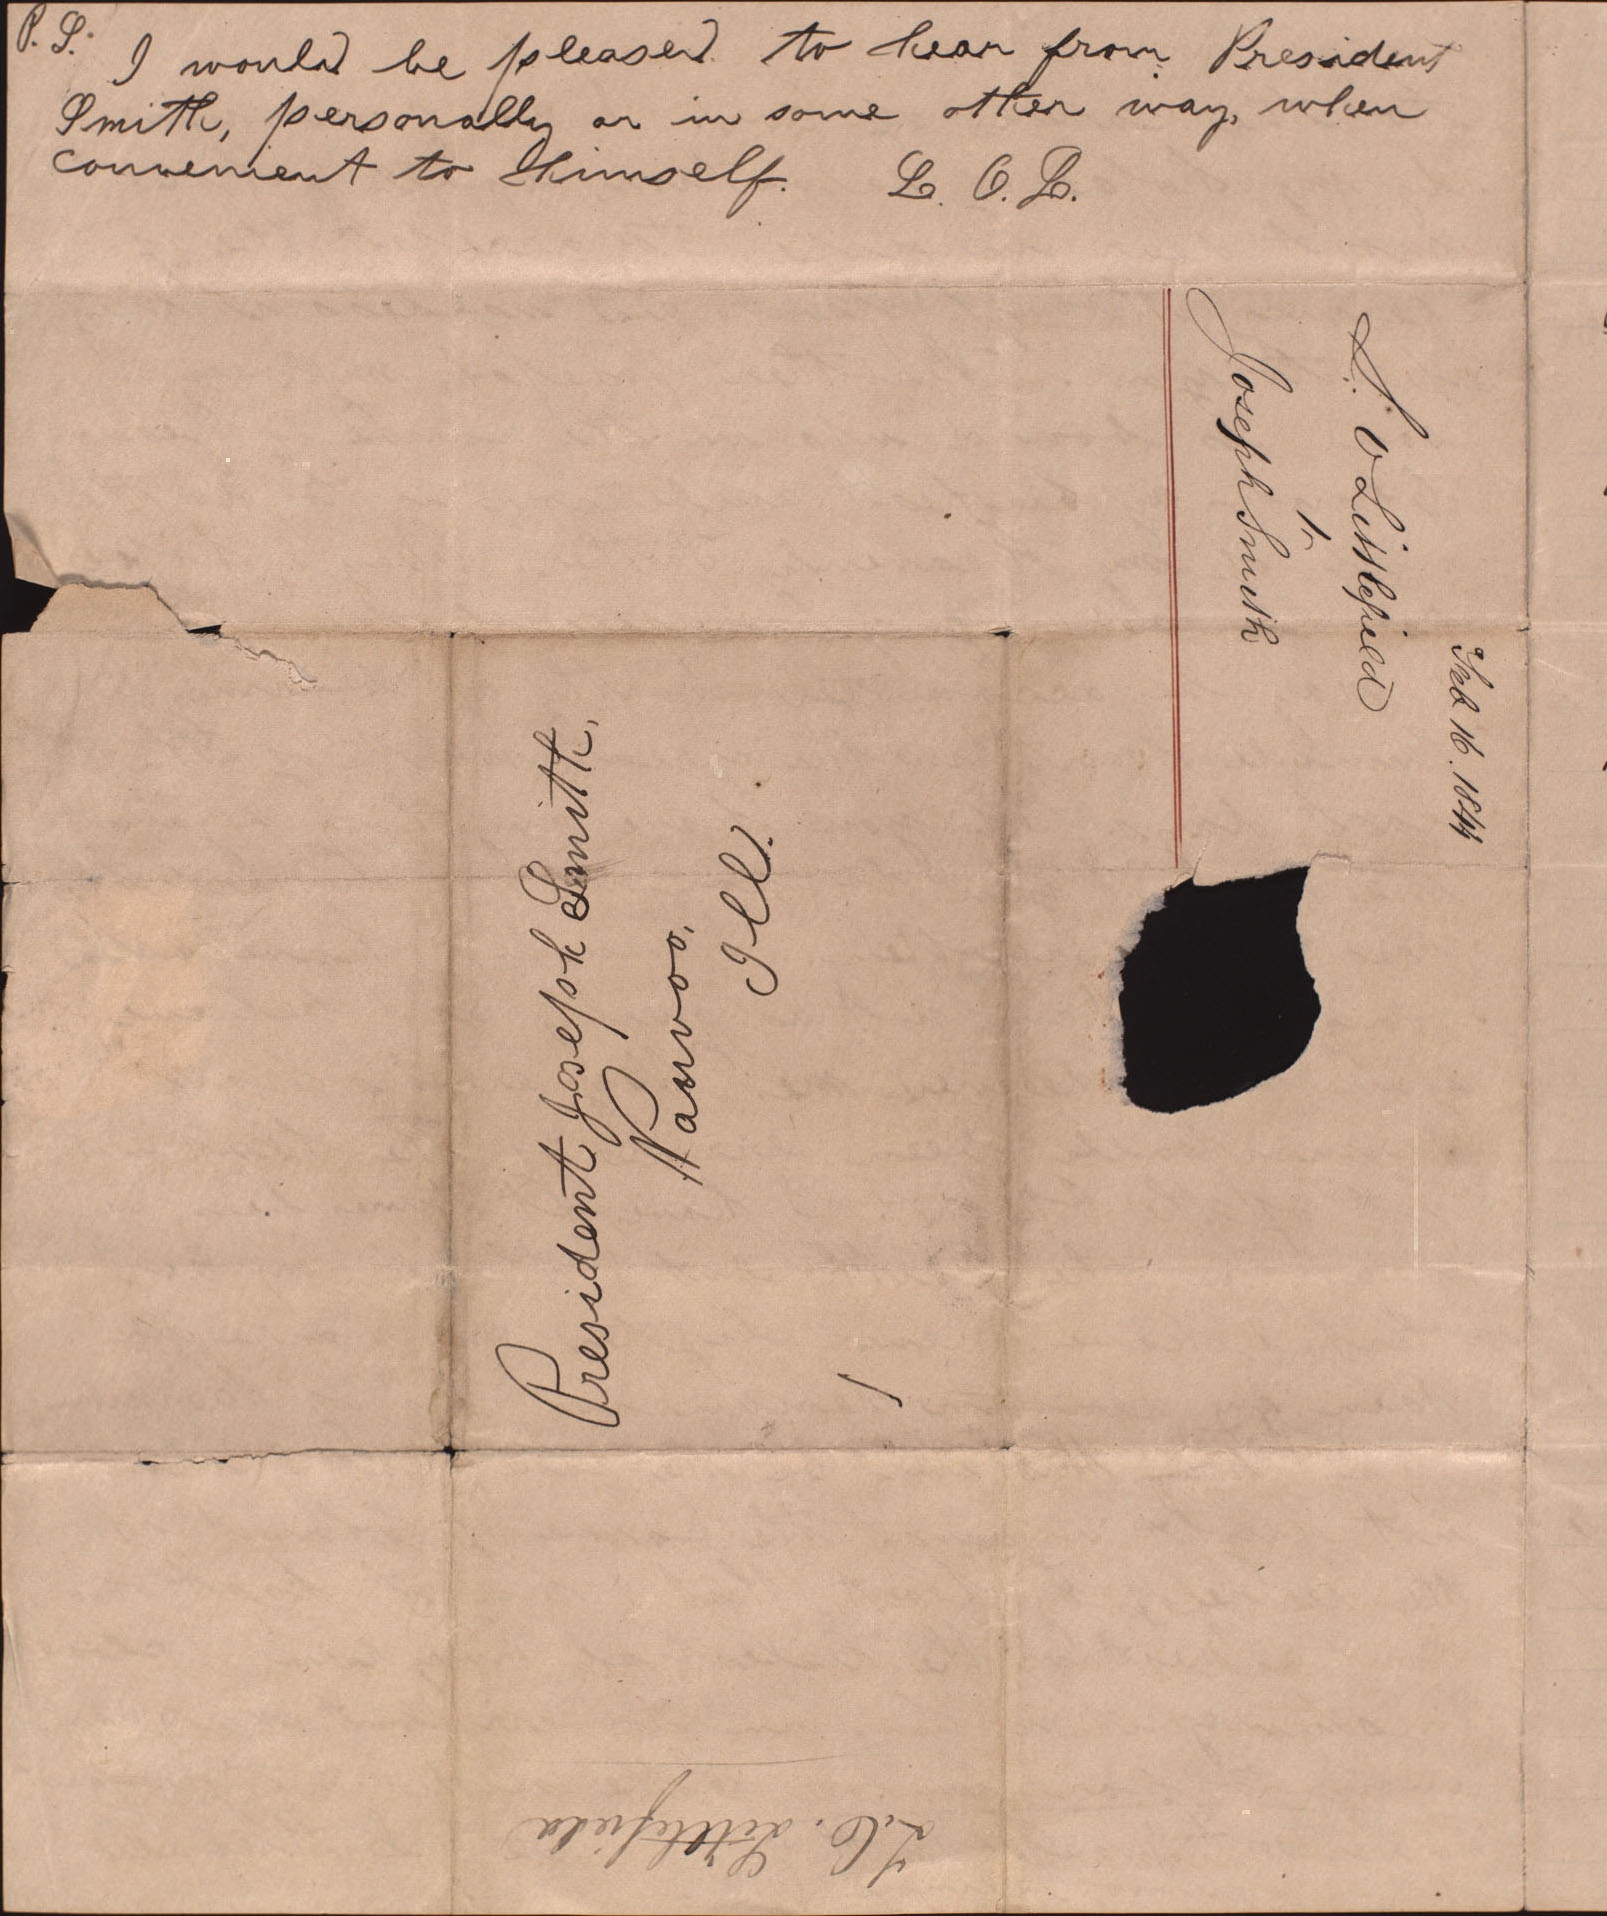 P. S. I would be pleased to hear from President
Smith, personally or in some other way, when
convenient to himself. L. O. L.
L. O Littlefield
to
Joseph Smith
Feb 16. 1844
President Joseph Smith,
Nauvoo,
Ill.
L.O. Littlefield